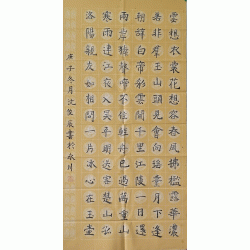 雲想衣裳花想容春風拂檻露華濃
若非羣玉山頭見會向瑤臺月下逢
朝辭白帝彩雲間千里江陵一日還
兩岸猿聲啼不住輕舟已過萬重山
寒雨連江夜入吳平明送客楚山孤
洛陽親友如相問一片冰心在玉壺
庚子冬月沈書於永川